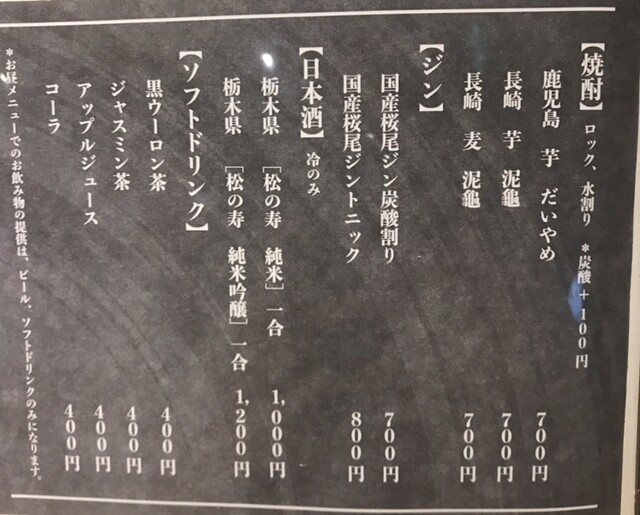 【焼酎】 ロック、水割り *炭酸+100円
鹿児島 芋 だいやめ 700円
長崎 芋 泥亀 700円
長崎 麦 泥亀 700円
【ジン】
国産桜尾ジン炭酸割り 700円
国産桜尾ジントニック 800円
【日本酒】 冷のみ
栃木県 [松の寿 純米] 一合 1,000円
栃木県 [松の寿 純米吟醸] 一合 1,200円
【ソフトドリンク】
黒ウーロン茶 400円
ジャスミン茶 400円
アップルジュース 400円
コーラ 400円
*お昼メニューでのお飲み物の提供は、ビール、ソフトドリンクのみになります。